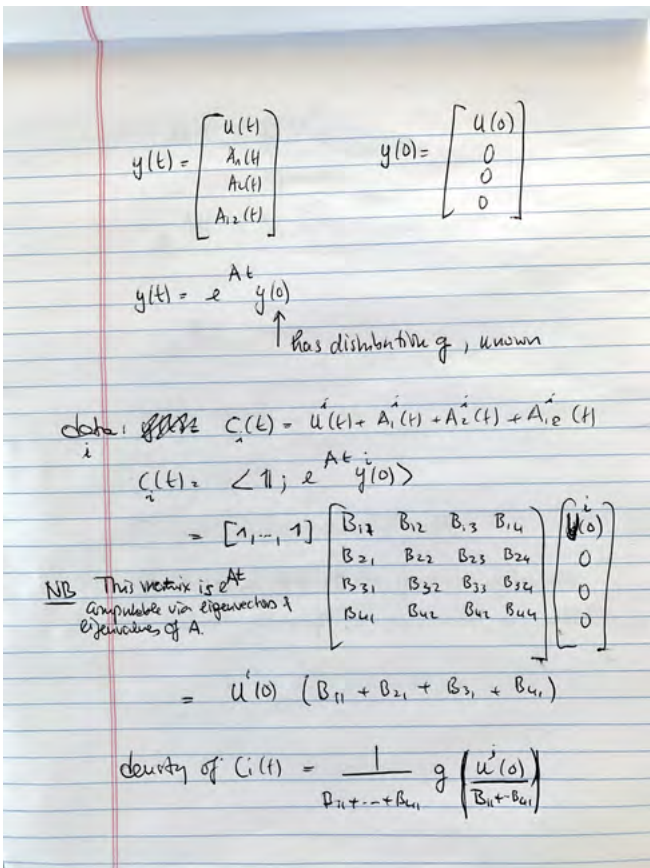 y(t) = [ u(t) A₁(t) A₂(t) A₁₂(t) ]   y(0) = [ u(0) 0 0 0 ]
y(t) = e^{At} y(0)
↑ has distribution g, known
data: Cᵢ(t) = uⁱ(t) + A₁ⁱ(t) + A₂ⁱ(t) + A₁₂ⁱ(t)
i
Cᵢ(t) = <𝟙; e^{At} yⁱ(0)>
= [1, ..., 1] [ B₁₁ B₁₂ B₁₃ B₁₄
B₂₁ B₂₂ B₂₃ B₂₄
B₃₁ B₃₂ B₃₃ B₃₄
B₄₁ B₄₂ B₄₂ B₄₄ ] [ uⁱ(0) 0 0 0 ]
NB This matrix is e^{At}
computable via eigenvectors &
eigenvalues of A.
= uⁱ(0) (B₁₁ + B₂₁ + B₃₁ + B₄₁)
density of Cᵢ(t) = 1 / (B₁₁ + -- + B₄₁) g ( uⁱ(0) / (B₁₁ + -- B₄₁) )